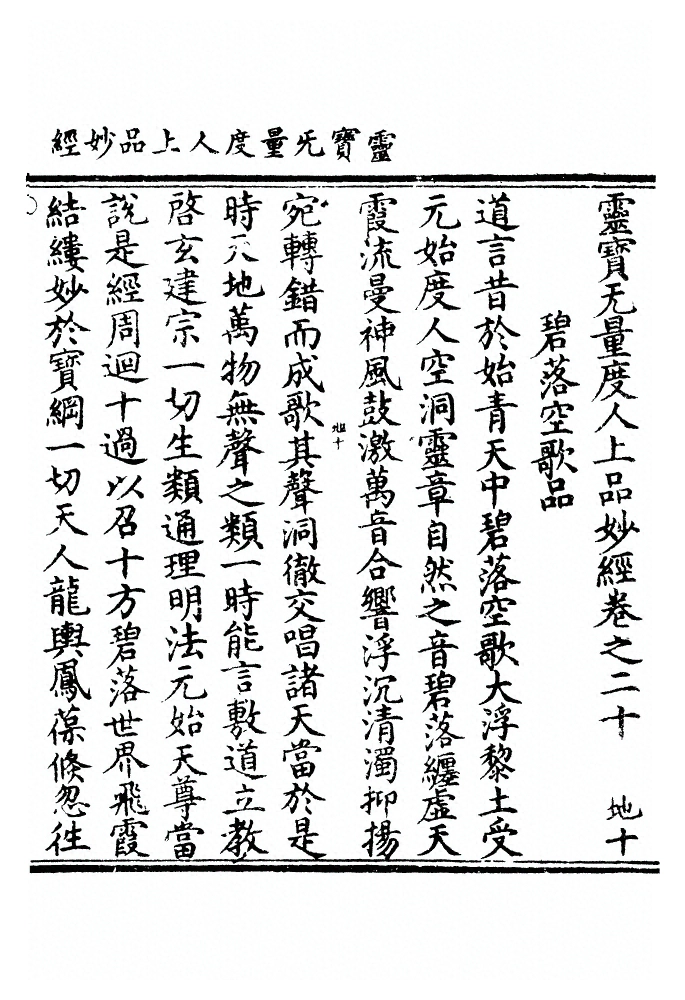 靈寶旡量度人上品妙經
靈寶无量度人上品妙經卷之二十 地十
碧落空歌品
道言昔於始青天中碧落空歌大浮黎土受
元始度人空洞靈章自然之音碧落纏虛天
霞流曼神風鼓激萬音合響浮沉清濁抑揚
宛轉錯而成歌其聲洞徹交唱諸天當於是
地十
時天地萬物無聲之類一時能言敷道立教
啓玄建宗一切生類通理明法元始天尊當
說是經周迴十過以召十方碧落世界飛霞
結縷妙於寶綱一切天人龍輿鳳葆倐忽徃